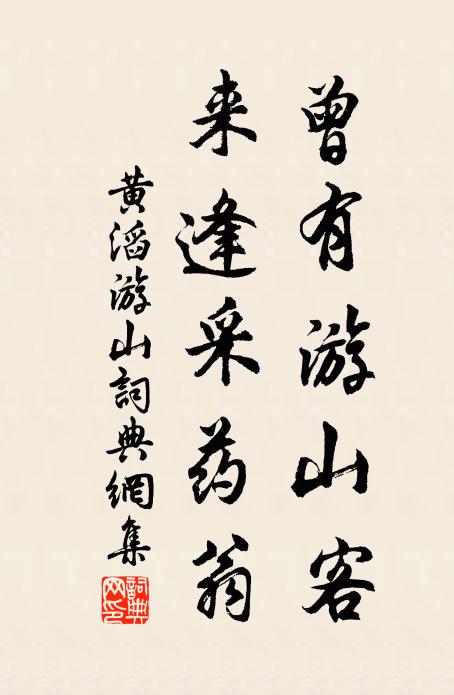 曾有游山客
来逢采药翁
黄滔游山詞典網集
詞典网印